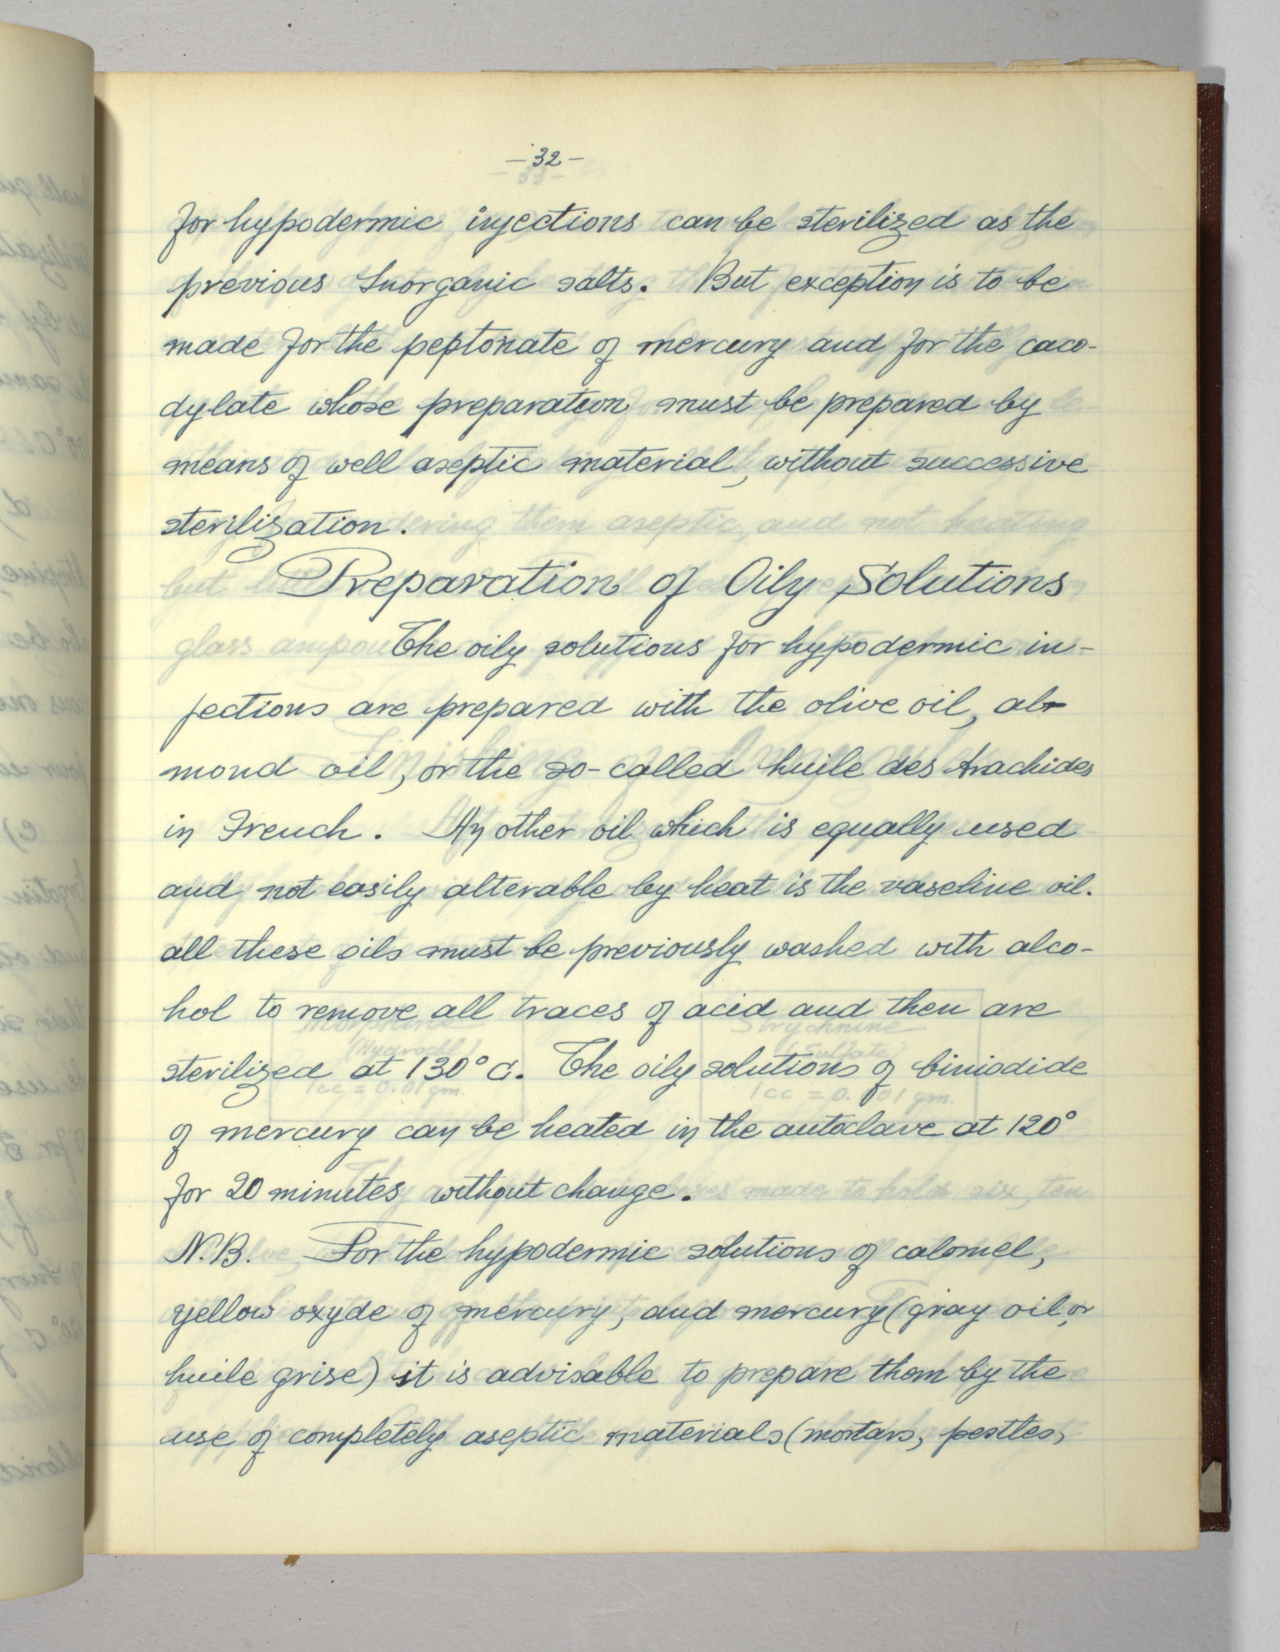 -32-
for hypodermic injections can be sterilized as the
previous Inorganic salts. But exception is to be
made for the peptonate of mercury and for the caco-
dylate whose preparation must be prepared by
means of well aseptic material, without successive
sterilization.
Preparation of Oily Solutions
The oily solutions for hypodermic in-
jections are prepared with the olive oil, al-
mond oil, or the so-called huile des Arachides
in French. An other oil which is equally used
and not easily alterable by heat is the vaseline oil.
all these oils must be previously washed with alco-
hol to remove all traces of acid and then are
sterilized at 130° C. The oily solutions of biniodide
of mercury can be heated in the autoclave at 120°
for 20 minutes without change.
N.B. For the hypodermic solutions of calomel,
yellow oxyde of mercury, and mercury (gray oil, or
huile grise) it is advisable to prepare them by the
use of completely aseptic materials (mortars, pestles,